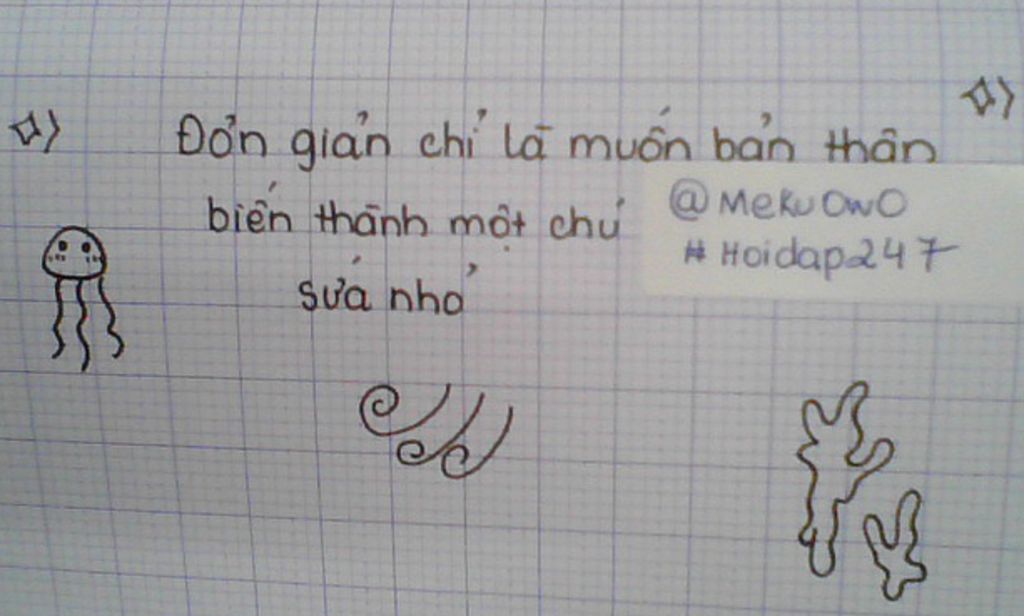 Đơn giản chỉ là muốn bản thân
biến thành một chú
sứa nhỏ
@MekuOwO
#Hoidap247